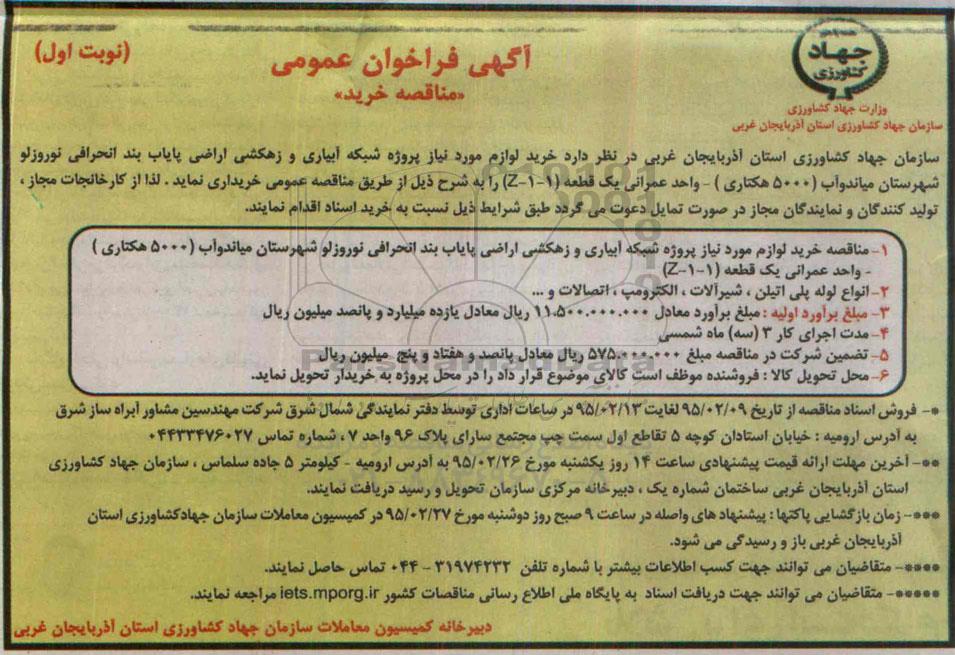 آگهی فراخوان عمومی
(نوبت اول)
«مناقصه خرید»
جهاد
کشاورزی
وزارت جهاد کشاورزی
سازمان جهاد کشاورزی استان آذربایجان غربی
سازمان جهاد کشاورزی استان آذربایجان غربی در نظر دارد خرید لوازم مورد نیاز پروژه شبکه آبیاری و زهکشی اراضی پایاب بند انحرافی نوروزلو
شهرستان میاندوآب (۵۰۰۰ هکتاری ) - واحد عمرانی یک قطعه (Z-۱-۱) را به شرح ذیل از طریق مناقصه عمومی خریداری نماید . لذا از کارخانجات مجاز ،
تولید کنندگان و نمایندگان مجاز در صورت تمایل دعوت می گردد طبق شرایط ذیل نسبت به خرید اسناد اقدام نمایند.
۱- مناقصه خرید لوازم مورد نیاز پروژه شبکه آبیاری و زهکشی اراضی پایاب بند انحرافی نوروزلو شهرستان میاندوآب (۵۰۰۰ هکتاری )
- واحد عمرانی یک قطعه (Z-۱-۱)
۲- انواع لوله پلی اتیلن ، شیرآلات ، الکتروپمپ ، اتصالات و ...
۳- مبلغ برآورد اولیه : مبلغ برآورد معادل ۱۱،۵۰۰،۰۰۰،۰۰۰ ریال معادل یازده میلیارد و پانصد میلیون ریال
۴- مدت اجرای کار ۳ (سه) ماه شمسی
۵- تضمین شرکت در مناقصه مبلغ ۵۷۵،۰۰۰،۰۰۰ ریال معادل پانصد و هفتاد و پنج میلیون ریال
۶- محل تحویل کالا : فروشنده موظف است کالای موضوع قرار داد را در محل پروژه به خریدار تحویل نماید.
*- فروش اسناد مناقصه از تاریخ ۹۵/۰۲/۰۹ لغایت ۹۵/۰۲/۱۳ در ساعات اداری توسط دفتر نمایندگی شمال شرق شرکت مهندسین مشاور آبراه ساز شرق
به آدرس ارومیه : خیابان استادان کوچه ۵ تقاطع اول سمت چپ مجتمع سارای پلاک ۹۶ واحد ۷ ، شماره تماس ۰۴۴۳۳۴۷۶۰۲۷
**- آخرین مهلت ارائه قیمت پیشنهادی ساعت ۱۴ روز یکشنبه مورخ ۹۵/۰۲/۲۶ به آدرس ارومیه - کیلومتر ۵ جاده سلماس ، سازمان جهاد کشاورزی
استان آذربایجان غربی ساختمان شماره یک ، دبیرخانه مرکزی سازمان تحویل و رسید دریافت نمایند.
***- زمان بازگشایی پاکتها : پیشنهاد های واصله در ساعت ۹ صبح روز دوشنبه مورخ ۹۵/۰۲/۲۷ در کمیسیون معاملات سازمان جهادکشاورزی استان
آذربایجان غربی باز و رسیدگی می شود.
****- متقاضیان می توانند جهت کسب اطلاعات بیشتر با شماره تلفن ۳۱۹۷۴۲۳۲ - ۰۴۴ تماس حاصل نمایند.
*****- متقاضیان می توانند جهت دریافت اسناد به پایگاه ملی اطلاع رسانی مناقصات کشور iets.mporg.ir مراجعه نمایند.
دبیرخانه کمیسیون معاملات سازمان جهاد کشاورزی استان آذربایجان غربی
ParsNamadData